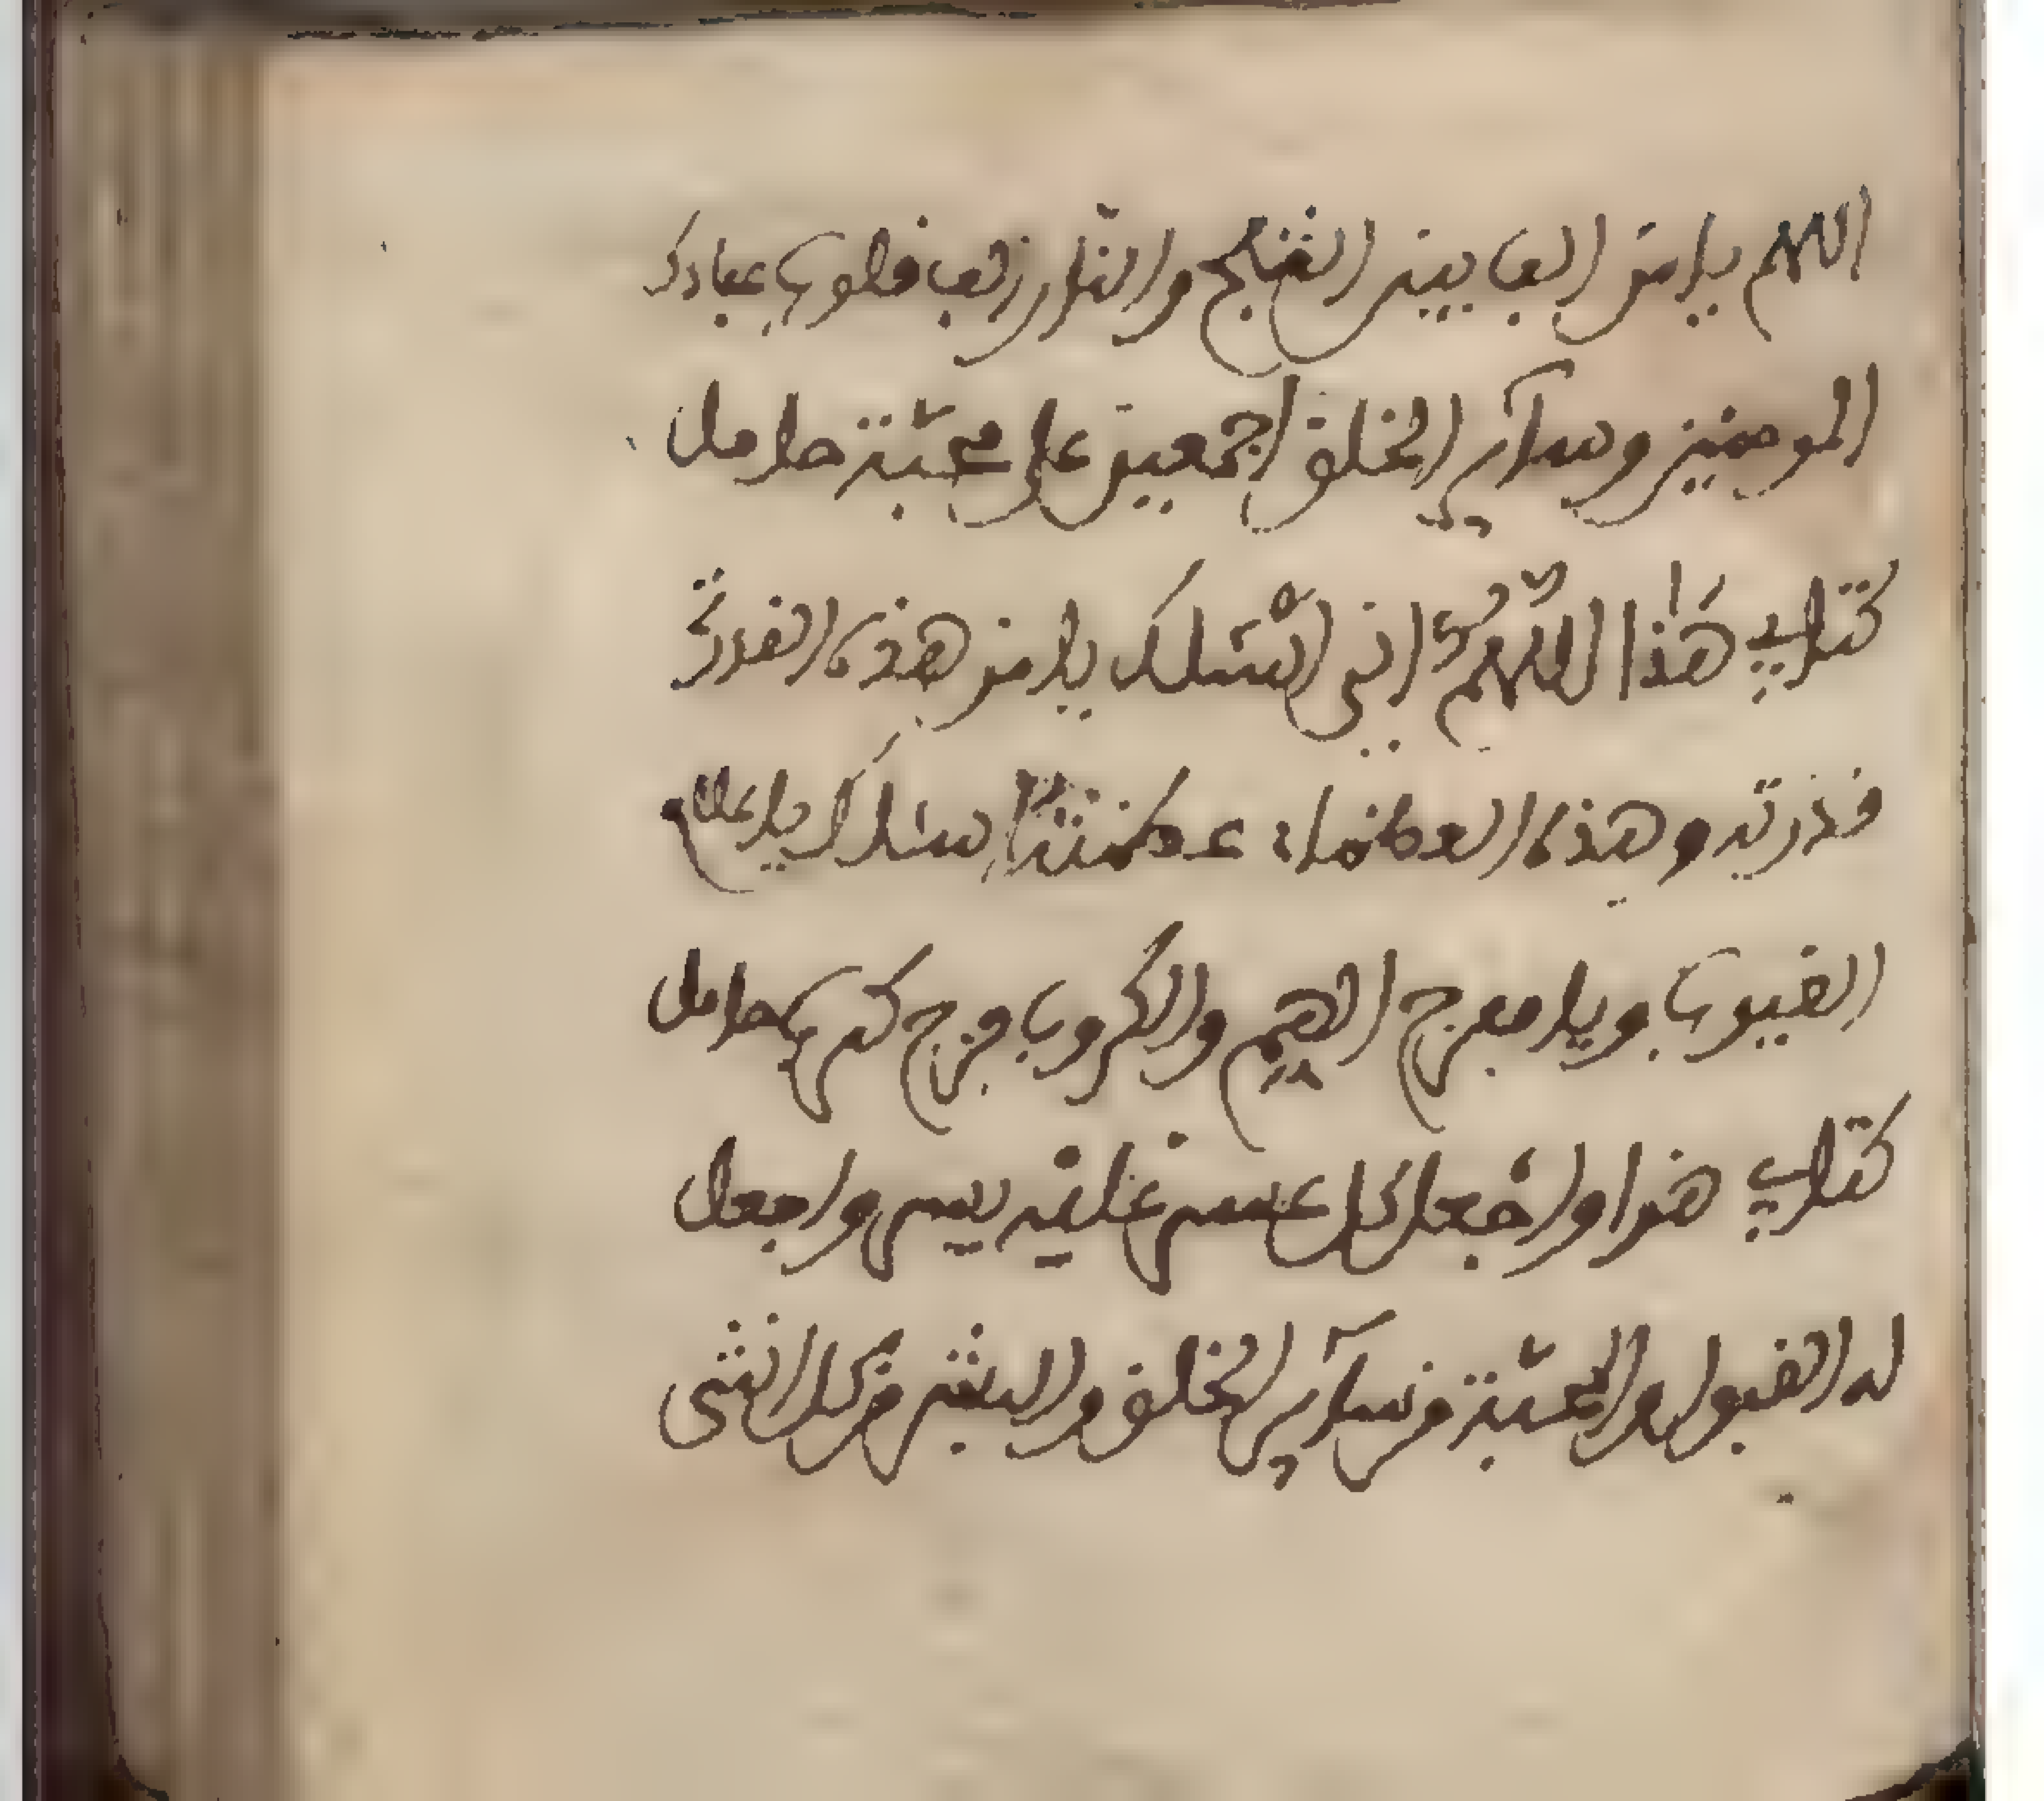 اللهم يا من الف بين الثلج والنار الف قلوب عبادك
المومنين وسآير الخلق اجمعين على محبّة حامل
كتاب هَذا اللّهمّ اني اسئلك يا من هذه القدرة
قدرته وهذه العظماء عظمته اسئلك يا علام
الغيوب ويا مفرج الهم والكروب فرج كرب حامل
كتاب هذا واجعل كل عسر عليه يسر واجعل
له القبول والمحبّة من سآير الخلق والبشر من كل انثى